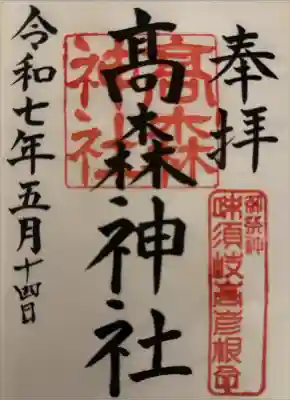 奉拝
髙森
神社
御祭神
味須岐高彦根命
髙森神社
令和七年五月十四日